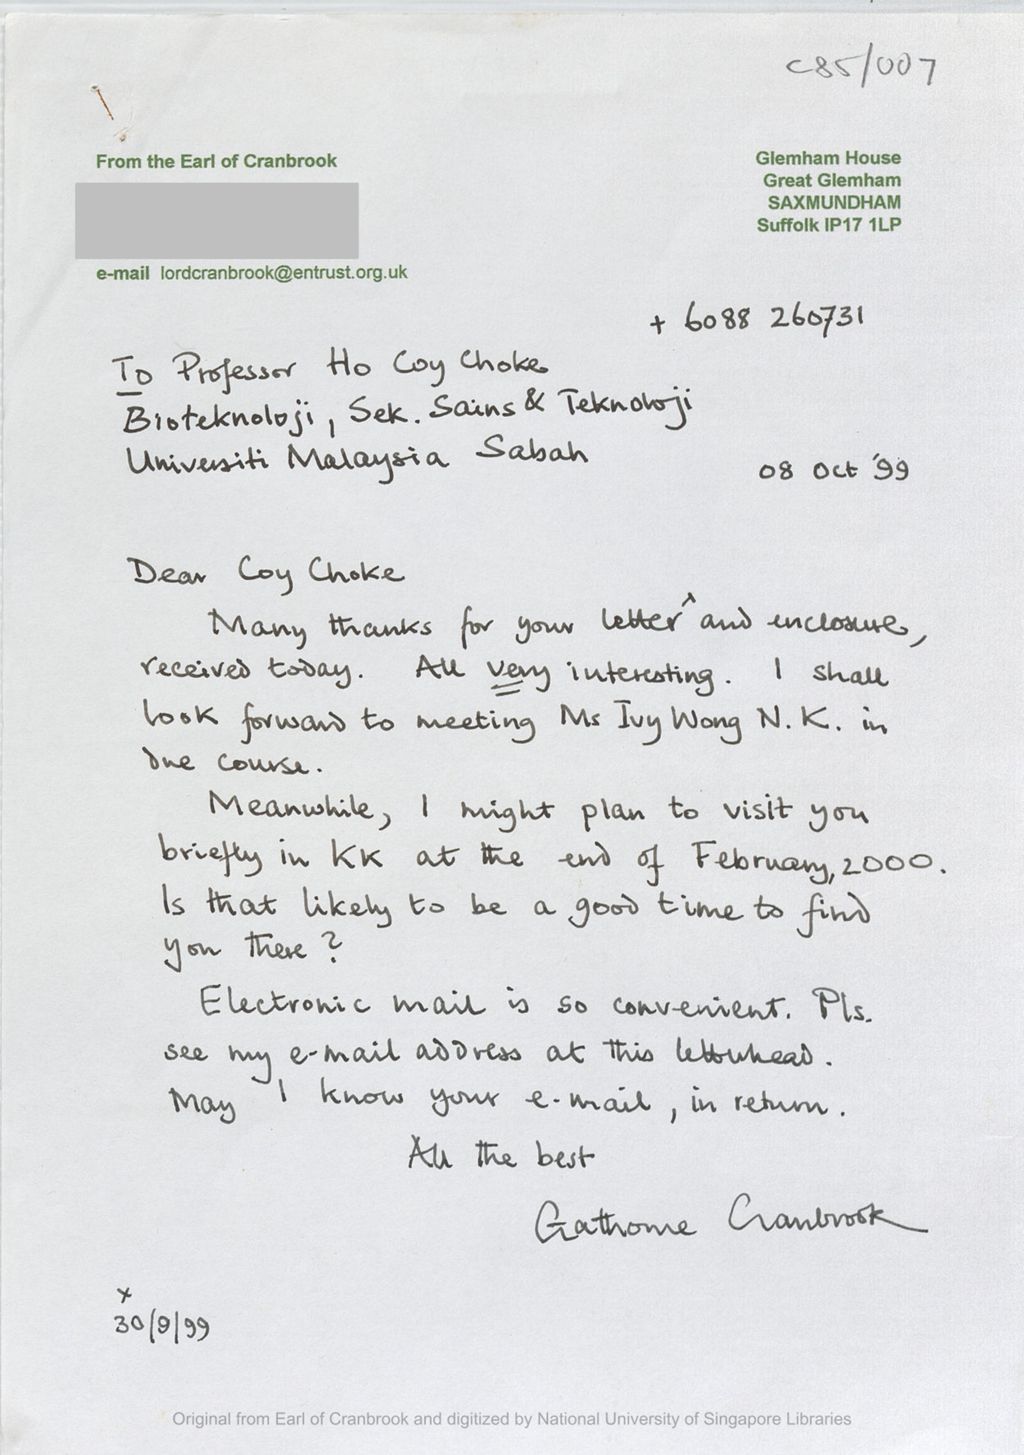 C85/007
From the Earl of Cranbrook
e-mail lordcranbrook@entrust.org.uk
Glemham House
Great Glemham
SAXMUNDHAM
Suffolk IP17 1LP
+ 6088 260731
To Professor Ho Coy Choke
Bioteknoloji, Sek. Sains & Teknoloji
Universiti Malaysia Sabah
08 Oct '99
Dear Coy Choke
Many thanks for your letter^ and enclosure,
received today. All very interesting. I shall
look forward to meeting Ms Ivy Wong N.K. in
due course.
Meanwhile, I might plan to visit you
briefly in KK at the end of February, 2000.
Is that likely to be a good time to find
you there?
Electronic mail is so convenient. Pls.
see my e-mail address at this letterhead.
May I know your e-mail, in return.
All the best
Gathorne Cranbrook
x
30/9/99
Original from Earl of Cranbrook and digitized by National University of Singapore Libraries